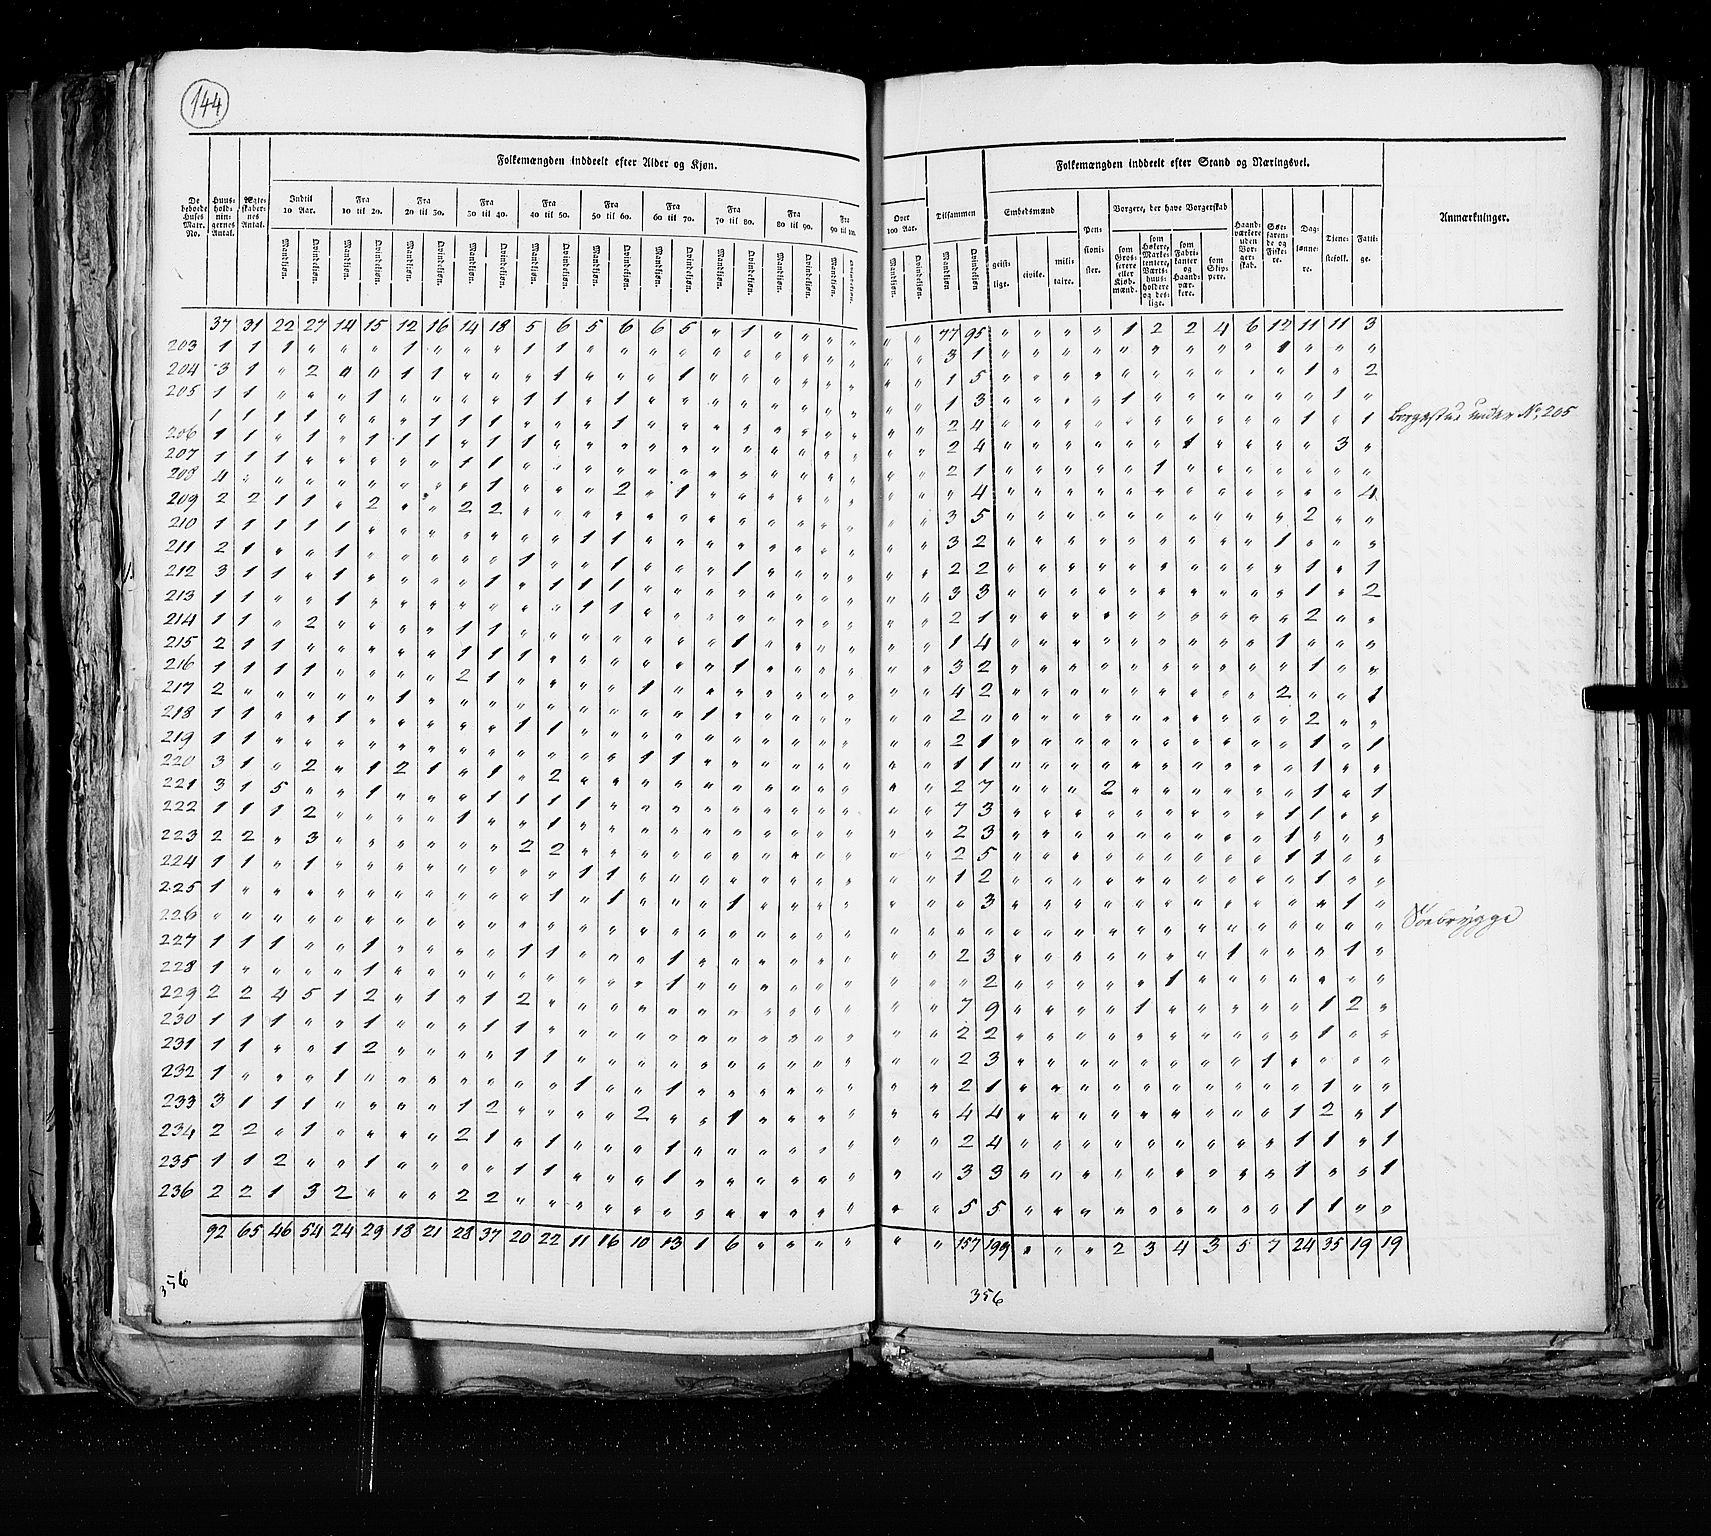 144
Folkemængden inddeelt efter Alder og Kjøn.
Folkemængden inddeelt efter Stand og Næringsvei.
De beboede Huses Matr. No.
Huusholdningernes Antal.
Ægteskabernes Antal.
Indtil 10 Aar.
Fra 10 til 20.
Fra 20 til 30.
Fra 30 til 40.
Fra 40 til 50.
Fra 50 til 60.
Fra 60 til 70.
Fra 70 til 80.
Fra 80 til 90.
Fra 90 til 100.
Over 100 Aar.
Tilsammen
Embedsmænd
Pensionister.
Borgere, der have Borgerskab
Haandværkere uden Borgerskab.
Søefarende og Fiskere.
Daglønnere.
Tjenestefolk.
Fattige.
Anmærkninger.
Mandkjøn. Qvindekjøn. Mandkjøn. Qvindekjøn. Mandkjøn. Qvindekjøn. Mandkjøn. Qvindekjøn. Mandkjøn. Qvindekjøn. Mandkjøn. Qvindekjøn. Mandkjøn. Qvindekjøn. Mandkjøn. Qvindekjøn. Mandkjøn. Qvindekjøn. Mandkjøn. Qvindekjøn. Mandkjøn. Qvindekjøn. Mandkjøn Qvindekjøn.
geistlige. civile. militaire.
som Grosserere eller Kjøbmænd.
som Høkere, Marketentere, Værtshuusholdere og deslige.
som Fabrikanter og Haandværkere.
som Skippere.
37 31 22 27 14 15 12 16 14 18 5 6 5 6 6 5 " 1 " " " " " " 77 95 " " " " 1 2 2 4 6 12 11 11 3
203 1 1 1 " " " 1 " " " 1 1 " " " " " " " " " " " " 3 1 " " " " " " " " " 1 " " "
204 3 1 " 2 " " 1 1 " " " 1 " " " 1 " " " " " " " " 1 5 " " " " " " " " " " 1 " 2
205 1 1 " " " 1 " " " " 1 1 " 1 " " " " " " " " " " 1 3 " " " " 1 " " " " " " 1 "
1 1 1 1 " " " 1 1 1 " " " 1 " " " " " " " " " " 2 4 " " " " " " " " " " 1 " 1 Borgestue under No. 205
206 1 1 " 1 " 1 1 1 " 1 1 " " " " " " " " " " " " " 2 4 " " " " " " 1 " " " " 3 "
207 1 1 1 " " " " " 1 1 " " " " " " " " " " " " " " 2 1 " " " " " 1 " " " " " " "
208 4 " " " " " " " " 1 " " " 2 " 1 " " " " " " " " " 4 " " " " " " " " " " " " 4
209 2 2 1 1 " 2 " " 2 2 " " " " " " " " " " " " " " 3 5 " " " " " " " " " " 2 " "
210 1 1 1 1 1 " " " " " " " 1 1 " " " " " " " " " " 3 2 " " " " " " " " " 1 " " "
211 2 1 " " 1 " " " " " 1 " " 1 " " " 1 " " " " " " 2 2 " " " " " " " " " " 1 " 1
212 3 1 1 " 1 " " " " 1 " 1 1 1 " " " " " " " " " " 3 3 " " " " " " " " " " 1 " 2
213 1 1 " " 1 " " " " " " " 1 1 " " " " " " " " " " 2 1 " " " " " " " " " " 2 " "
214 1 1 " 2 " " " " 1 1 " " " " " " " 1 " " " " " " 1 4 " " " " " " " " " 1 " " "
215 2 1 1 " " " " " 1 1 1 " " " " " " 1 " " " " " " 3 2 " " " " " " " " " " 1 " "
216 1 1 1 1 " " " " 2 1 " " " " 1 " " " " " " " " " 4 2 " " " " " " " " " 2 " " 1
217 2 " " " " " 1 " " " " " " " " " 1 " " " " " " " 2 " " " " " " " " " " " 2 " "
218 1 1 " " 1 " " " " " 1 1 " " " " " " " " " " " " 2 1 " " " " " " " " " " 1 " 1
219 1 1 " " " " " " " " " " " " 1 1 " " " " " " " " 1 1 " " " " " " " " " " 1 " "
220 3 1 " 2 " 1 2 1 " 1 " 2 " " " " " " " " " " " " 2 7 " " " 2 " " " " " " 1 " 1
221 3 1 5 " " 1 " " " 1 1 1 1 " " " " " " " " " " " 7 3 " " " " " " " " " 1 1 " "
222 1 1 1 2 " " " " 1 " " 1 " " " " " " " " " " " " 2 3 " " " " " " " " " 1 " " "
223 2 2 " 3 " " " " " " 2 2 " " " " " " " " " " " " 2 5 " " " " " " " " " 1 1 " "
224 1 1 " 1 " " " " " " " " 1 1 " " " " " " " " " " 1 2 " " " " " " " " " " 1 " "
225 1 " " " " " " " " " " 1 " 1 " " " 1 " " " " " " " 3 " " " " " " " " " " " 1 "
226 " " " " " " " " " " " " " " " " " " " " " " " " " " " " " " " " " " " " " " " Søebrygge
227 1 1 1 " " 1 " " " " 1 1 " " " 1 " " " " " " " " 2 3 " " " " " " " " 1 " " 1 "
228 1 " " " " 1 " " " " " " " " " 1 " " " " " " " " " 2 " " " " " " 1 " " " " " "
229 2 2 4 5 1 2 " 1 " 1 2 " " " " " " " " " " " " " 7 9 " " " " " 1 " " " " 1 2 "
230 1 1 1 " " 1 " " " 1 1 " " " " " " " " " " " " " 2 2 " " " " " " " " " " 1 " "
231 1 1 " " 1 2 " " " " 1 1 " " " " " " " " " " " " 2 3 " " " " " " " " " 1 " " "
232 1 " " " 1 " " " " " " " 1 " " 1 " " " " " " " " 2 1 " " " " " " " " " " 1 " "
233 3 1 1 1 " " " " 1 2 " " " " 2 " " 1 " " " " " " 4 4 " " " " " " " " " 1 2 " 1
234 2 2 " 1 " " " " 2 1 " 1 " " " 1 " " " " " " " " 2 4 " " " " " " " " " 1 1 " 1
235 1 1 2 " " 1 " " " " 1 1 " " " 1 " " " " " " " " 3 3 " " " " " " " " " 1 " " 1
236 2 2 1 3 2 " " " 2 2 " " " " " " " " " " " " " " 5 5 " " " " " " " " " 1 1 " "
92 65 46 54 24 29 18 21 28 37 20 22 11 16 10 13 1 6 " " " " " " 157 199 " " " 2 3 4 3 5 7 24 35 19 19
356
356